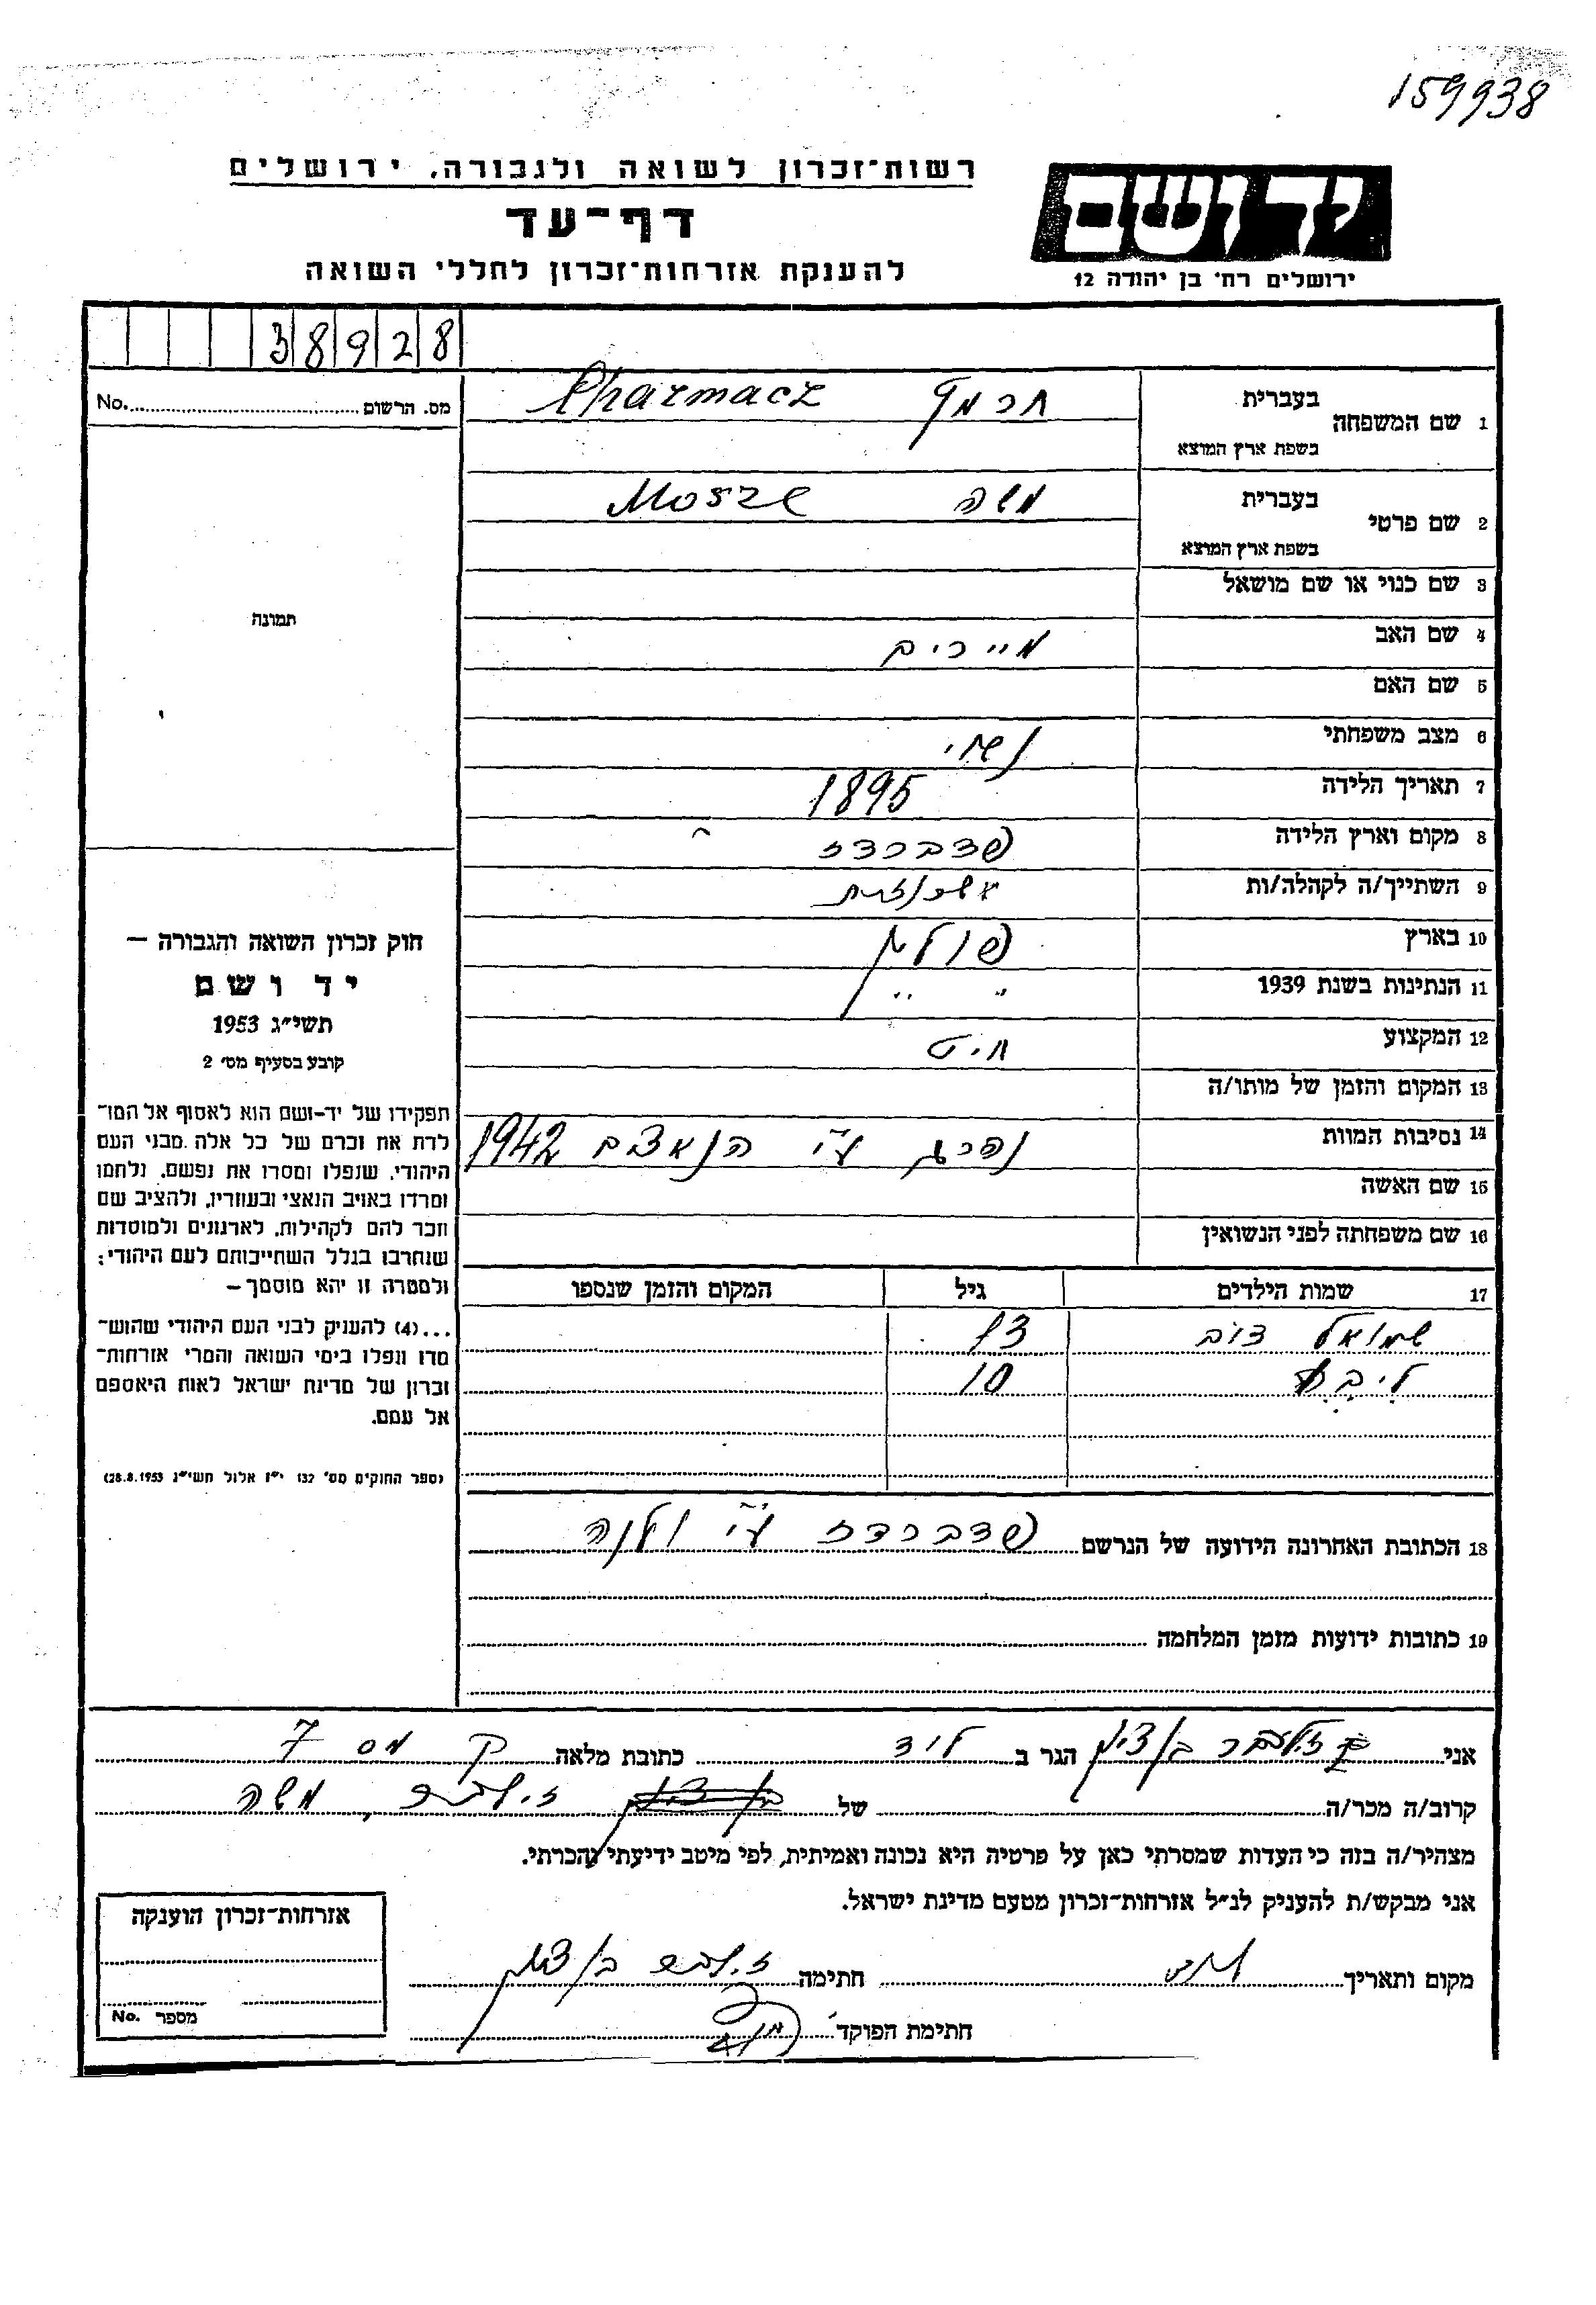 159938
רשות־זכרון לשואה ולגבורה, ירושלים
דף־עד
להענקת אזרחות־זכרון לחללי השואה
יד ושם
ירושלים רח' בן יהודה 12
38928
מס. הרשום No.
תמונה
חוק זכרון השואה והגבורה –
יד ושם
תשי״ג 1953
קובע בסעיף מס' 2
תפקידו של יד-ושם הוא לאסוף אל המו־
לדת את זכרם של כל אלה מבני העם
היהודי, שנפלו ומסרו את נפשם, נלחמו
ומרדו באויב הנאצי ובעוזריו, ולהציב שם
וזכר להם לקהילות, לארגונים ולמוסדות
שנחרבו בגלל השתייכותם לעם היהודי;
ולמטרה זו יהא מוסמך –
...(4) להענין לבני העם היהודי שהוש־
מדו ונפלו בימי השואה והמרי אזרחות־
זכרון של מדינת ישראל לאות היאספם
אל עמם.
(ספר החוקים מס' 132 י״ז אלול תשי״ג 28.8.1953)
1 שם המשפחה בעברית
בשפת ארץ המוצא
2 שם פרטי בעברית משה
בשפת ארץ המוצא
3 שם כנוי או שם מושאל
4 שם האב
5 שם האם
6 מצב משפחתי נשוי
7 תאריך הלידה 1895
8 מקום וארץ הלידה
9 השתייך/ה לקהלה/ות
10 בארץ פולין
11 הנתינות בשנת 1939 " "
12 המקצוע חיט
13 המקום והזמן של מותו/ה
14 נסיבות המוות נהרג ע״י הנאצים 1942
15 שם האשה
16 שם משפחתה לפני הנשואין
17 שמות הילדים גיל המקום והזמן שנספו
שמואל דוב 13
ליבע 10
18 הכתובת האחרונה הידועה של הנרשם ע״י וילנה
19 כתובות ידועות מזמן המלחמה
אני בן ציון הגר ב לוד כתובת מלאה 7
קרוב/ה מכר/ה של משה
מצהיר/ה בזה כי העדות שמסרתי כאן על פרטיה היא נכונה ואמיתית, לפי מיטב ידיעתי והכרתי.
אני מבקש/ת להעניק לנ״ל אזרחות־זכרון מטעם מדינת ישראל.
מקום ותאריך חתימה בן ציון
חתימת הפוקד
אזרחות־זכרון הוענקה
מספר No.